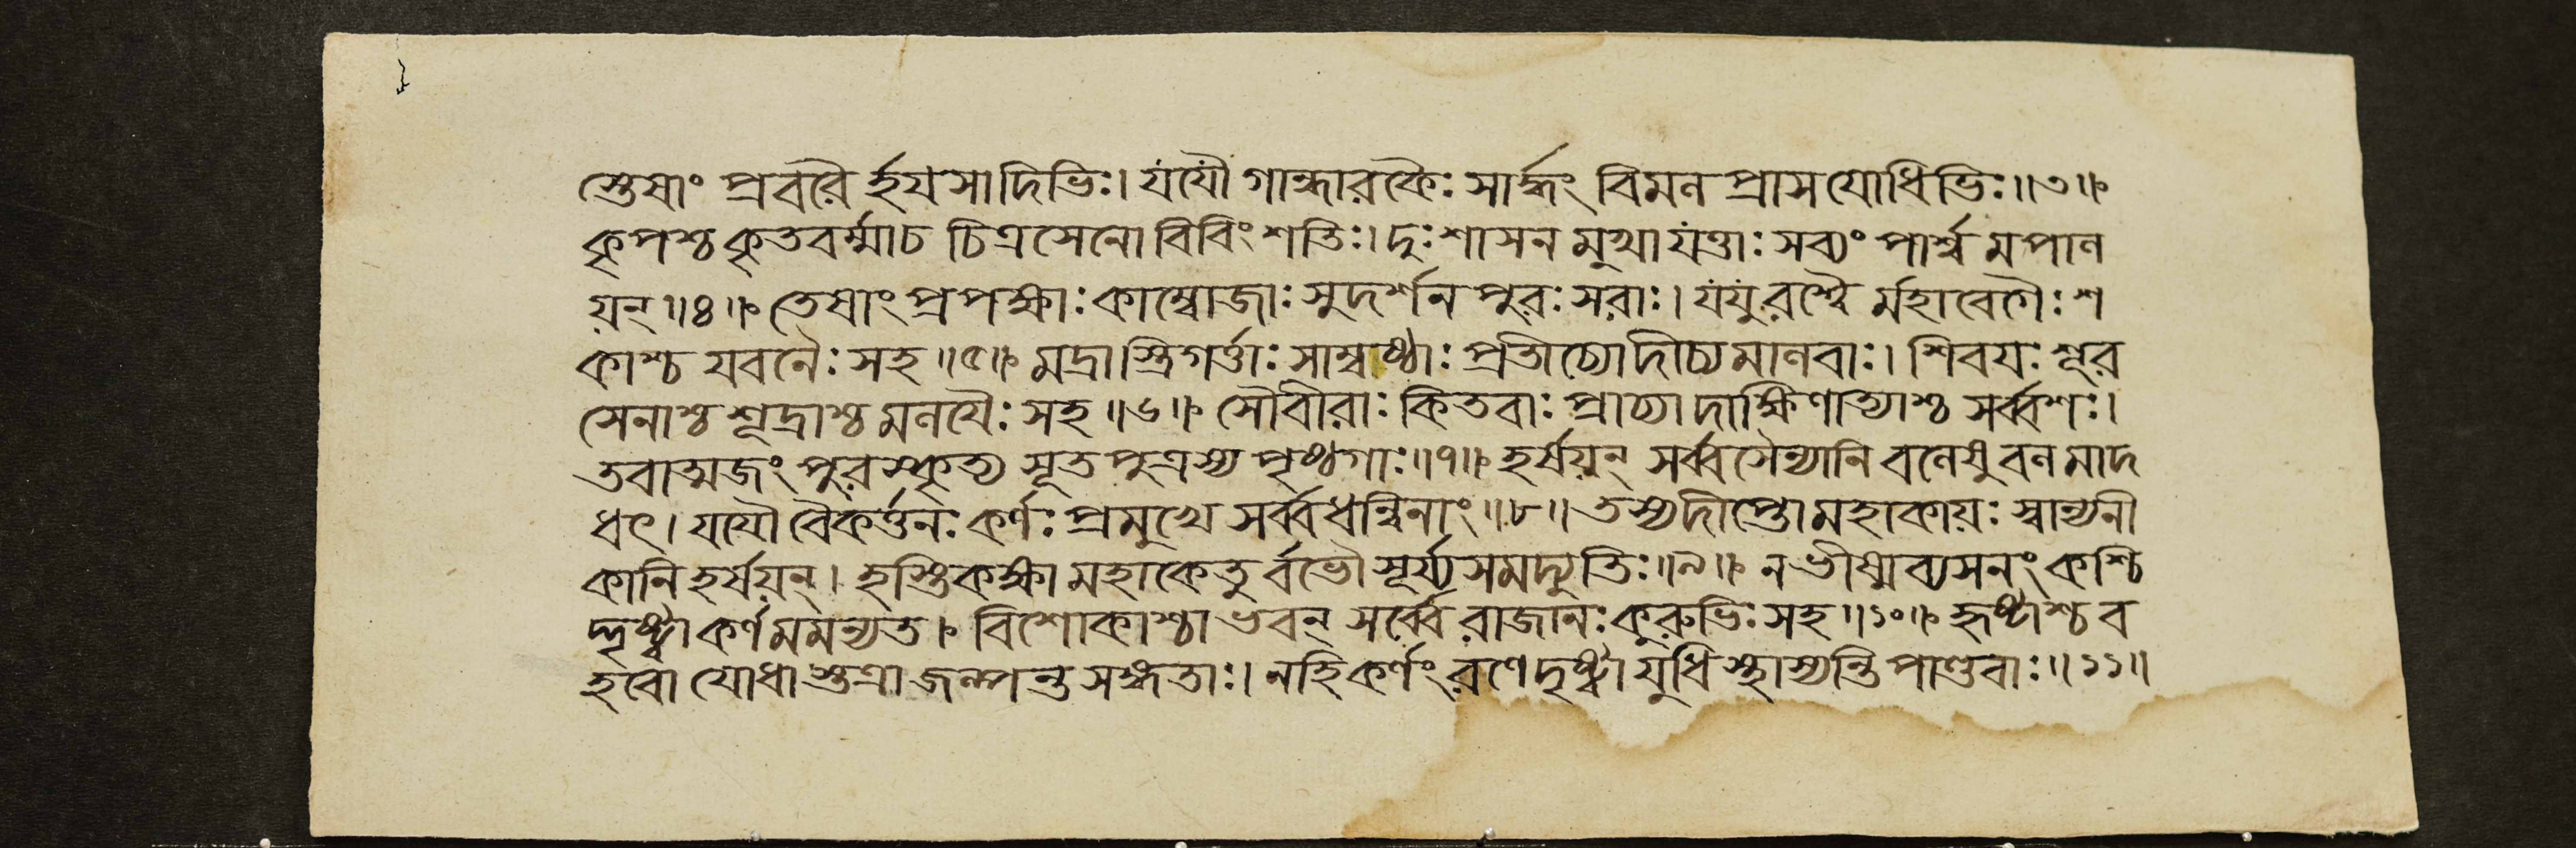 স্তেষাং প্রবরৈর্হযসাদিভিঃ। যযৌ গান্ধারকৈঃ সার্দ্ধং বিমনপ্রাসযোধিভিঃ॥৩॥
কৃপশ্চ কৃতবর্ম্মাচ চিত্রসেনো বিবিংশতিঃ। দুঃশাসনমুখা যত্তাঃ সব্যং পার্শ্বমপান
য়ন্॥৪॥ তেষাং প্রপক্ষাঃ কাম্বোজাঃ সুদর্শনপুরঃসরাঃ। যযুরশ্বৈর্মহাবেগৈঃ শ
কাশ্চ যবনৈঃ সহ॥৫॥ মদ্রাস্ত্রিগর্ত্তাঃ সাম্বষ্ঠাঃ প্রতীচ্যোদীচ্যমানবাঃ। শিবযঃ শূর
সেনাশ্চ শূদ্রাশ্চ মনযৈঃ সহ॥৬॥ সৌবীরাঃ কিতবাঃ প্রাচ্যা দাক্ষিণাত্যাশ্চ সর্ব্বশঃ।
তবাত্মজং পুরস্কৃত্য সূতপুত্রস্য পৃষ্ঠগাঃ॥৭॥ হর্ষয়ন্ সর্ব্বসৈন্যানি বনেষু বনমাদ
ধৎ। যযৌ বৈকর্ত্তনঃ কর্ণঃ প্রমুখে সর্ব্বধন্বিনাং॥৮॥ তস্য দীপ্তো মহাকায়ঃ স্বান্যনী
কানি হর্ষয়ন্। হস্তিকক্ষা মহাকেতুর্বভৌ সূর্য্যসমদ্যুতিঃ॥৯॥ ন ভীষ্মব্যসনং কশ্চি
দ্দৃষ্ট্বা কর্ণমমন্যত। বিশোকাশ্চাভবন্ সর্ব্বে রাজানঃ কুরুভিঃ সহ॥১০॥ হৃষ্টাশ্চ ব
হবো যোধাস্তত্রাজল্পন্ত সঙ্গতাঃ। নহি কর্ণং রণে দৃষ্ট্বা যুধি স্থাস্যন্তি পাণ্ডবাঃ॥১১॥